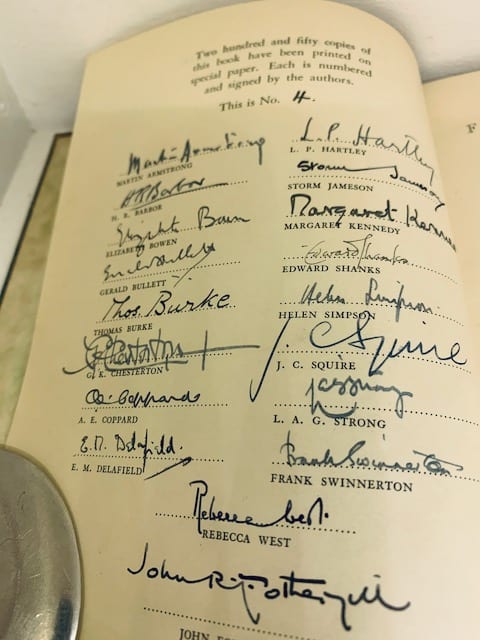 Two hundred and fifty copies of
this book have been printed on
special paper. Each is numbered
and signed by the authors.
This is No. 4.
Martin Armstrong
MARTIN ARMSTRONG
H R Barbor
H. R. BARBOR
Elizabeth Bowen
ELIZABETH BOWEN
Gerald Bullett
GERALD BULLETT
Thos. Burke
THOMAS BURKE
G K Chesterton
G. K. CHESTERTON
A. E. Coppard
A. E. COPPARD
E. M. Delafield.
E. M. DELAFIELD
L. P. Hartley
L. P. HARTLEY
Storm Jameson
STORM JAMESON
Margaret Kenne
MARGARET KENNEDY
Edward Shanks
EDWARD SHANKS
Helen Simpson.
HELEN SIMPSON
J. C Squire
J. C. SQUIRE
L. A. G. STRONG
Frank Swinnerton
FRANK SWINNERTON
Rebecca West.
REBECCA WEST
John R. Fothergill
JOHN
F